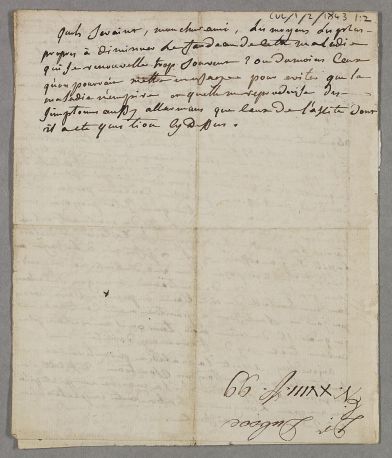 CUL/1/2/1843 1:2
Quels seraient, mon cher ami, des moyens les plus
propres à diminuer le fardeau de cette maladie
qui se renouvelle trop souvent ? ou du moins Ceux
qu'on pourrait mettre en usage pour eviter que la
maladie n'empire ou quelle ne reproduise des
simptomes aussi allarmans que ceux de l'asite dont
il a eté question cy Dessus.
N. XVIII. 99
Dr Dubose